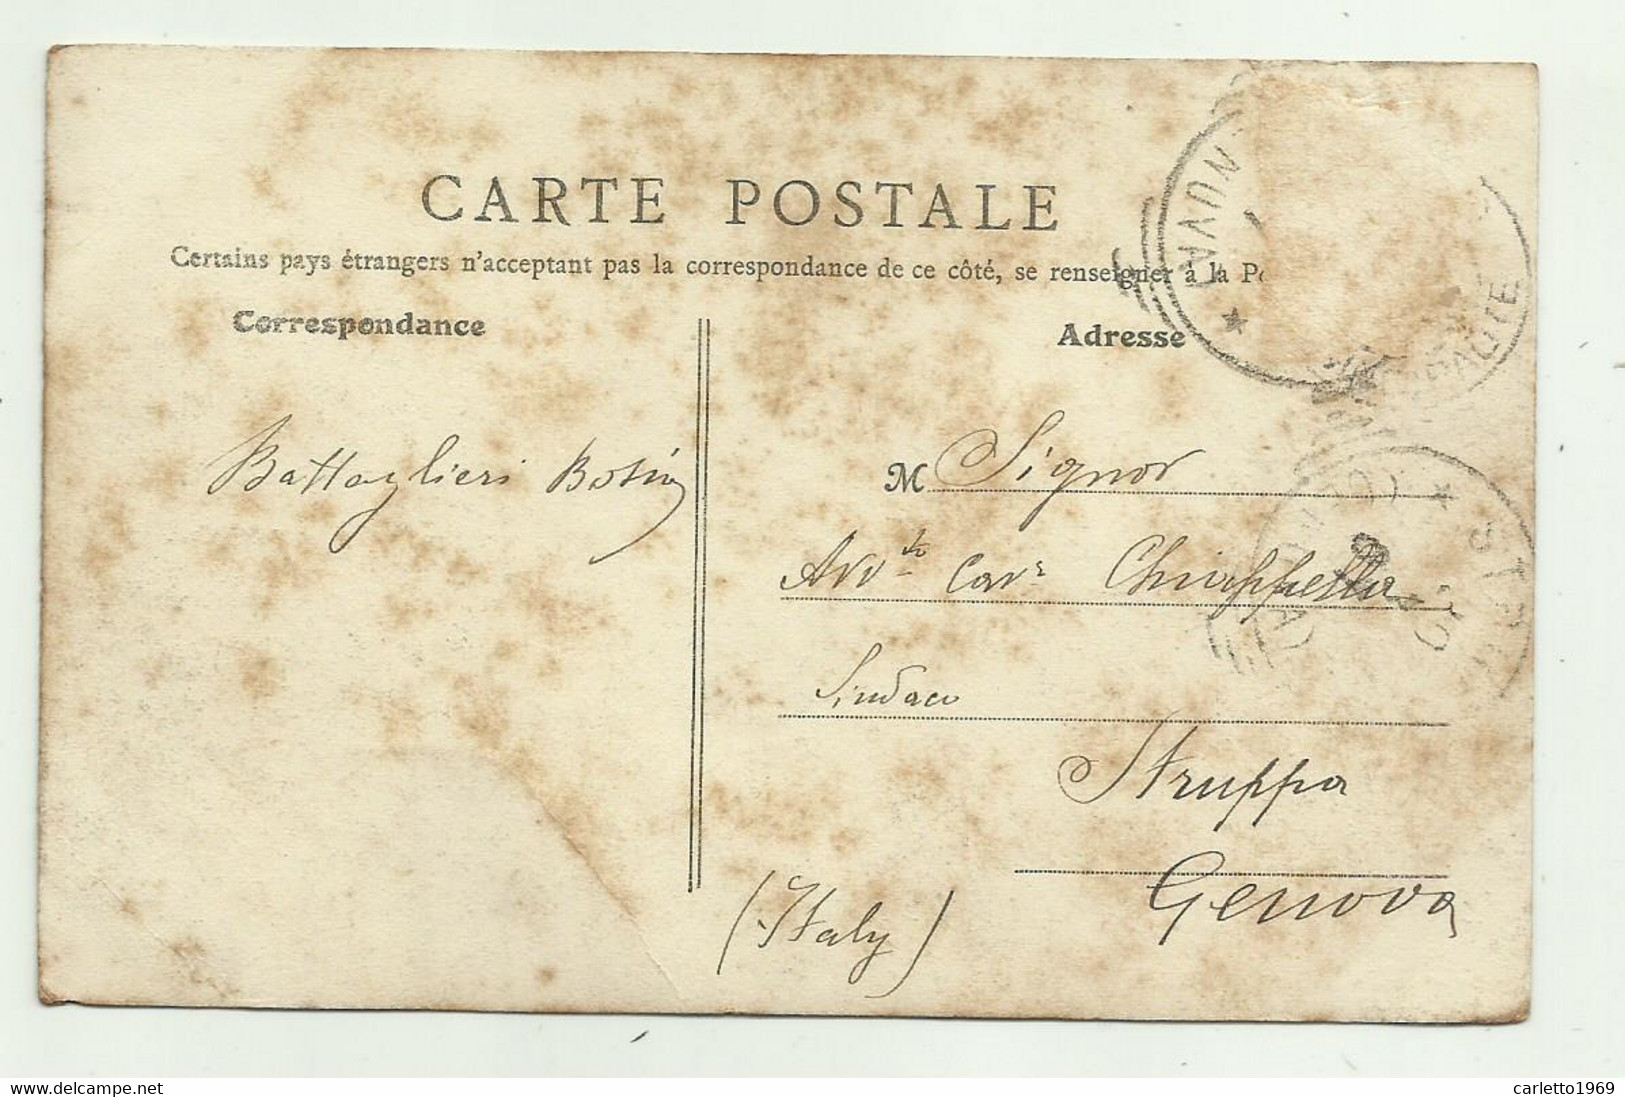 CARTE POSTALE
Certains pays étrangers n'acceptant pas la correspondance de ce côté, se renseigner à la Po
Correspondance
Adresse
Battaglieri
M Signor
Avv.to Cav.r Chiappella
Sindaco
Struppa
Genova
(Italy)
carletto1969